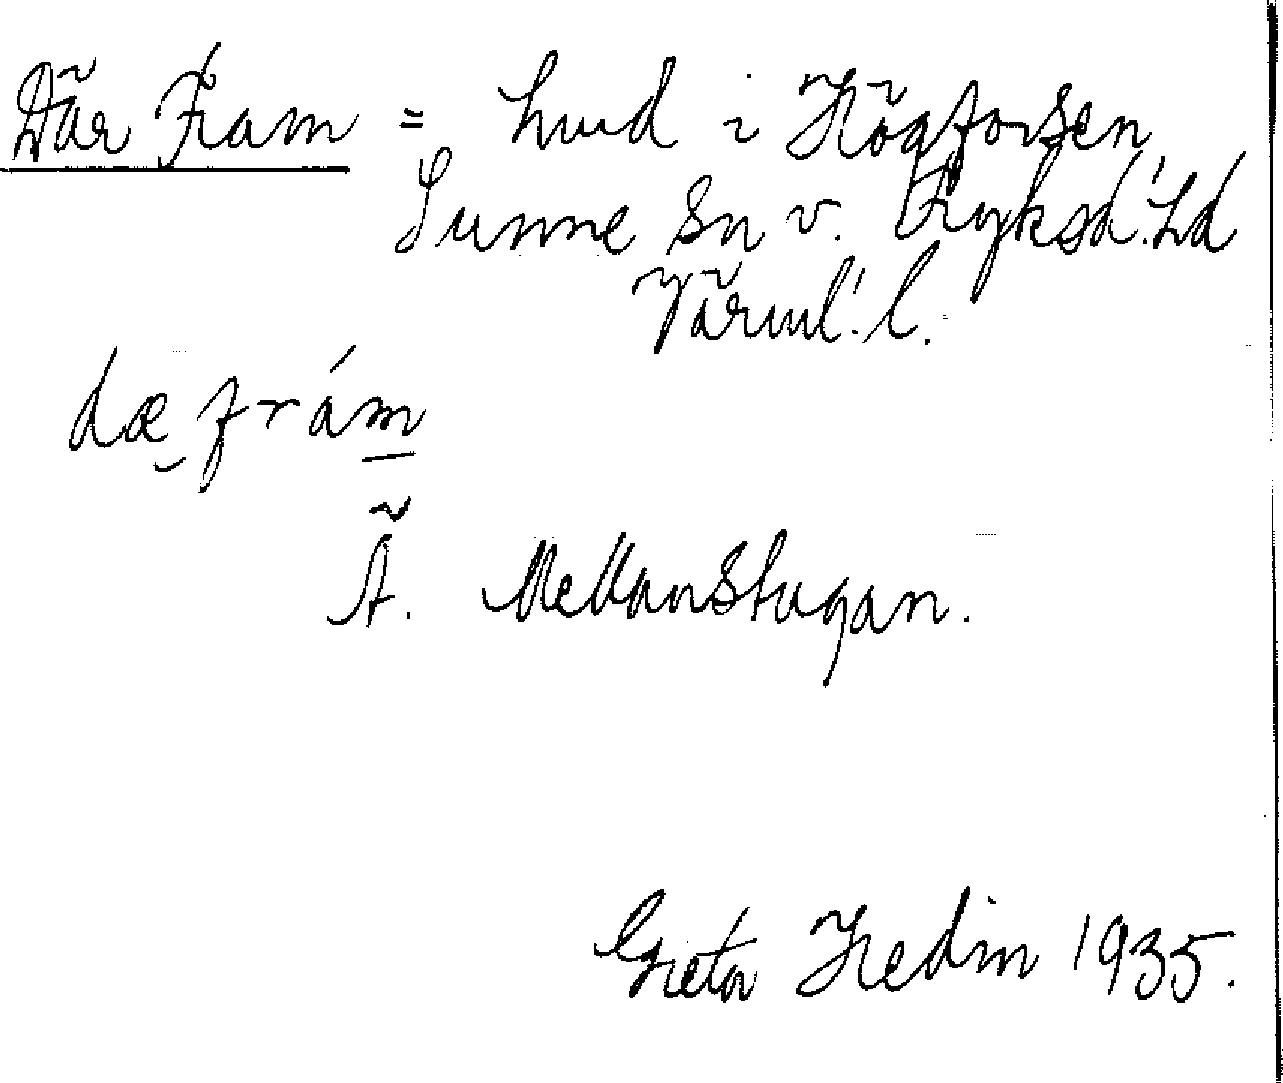 Där Fram = hmd i Högforsen
Sunne sn v. Fryksd:s hd
Värml:s l.
dæ frám
Ä. Mellanstugan.
Greta Hedin 1935.